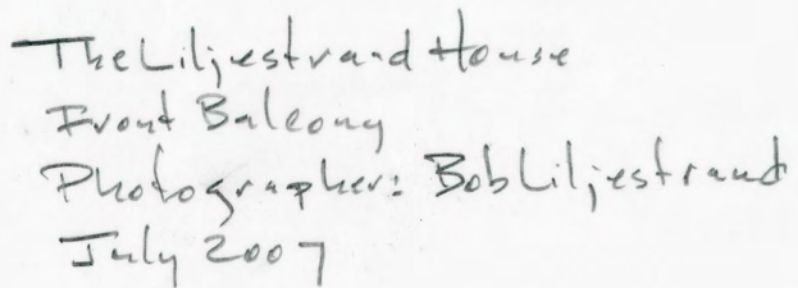 The Liljestrand House
Front Balcony
Photographer: Bob Liljestrand
July 2007